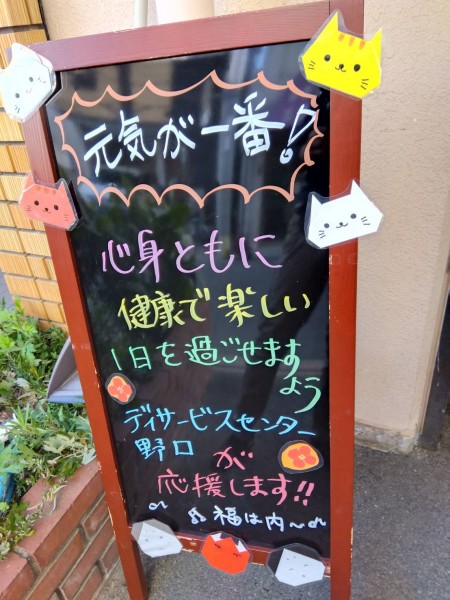 元気が一番!
心身ともに
健康で楽しい
1日を過ごせます
よう
デイサービスセンター
野口が
応援します!!
♪福は内〜♪